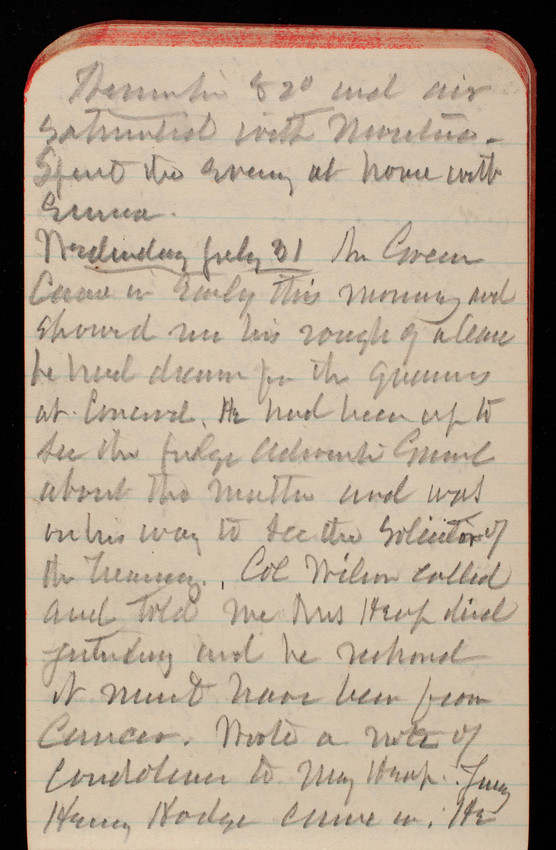 Thermometer 82° and air
saturated with moisture.
Spent the evening at home with
Emma.
Wednesday July 31 Mr Green
Came in Early this morning and
showed me his rough of a lease
he had drawn for the quarries
at Concord. He had been up to
see the Judge Advocate General
about the matter and was
on his way to see the Solicitor of
the Treasury. Col Wilson called
and told me Mrs Heap died
yesterday and he reckoned
it must have been from
Cancer. Wrote a note of
Condolence to Maj Heap.
Henry Hodge came in. He